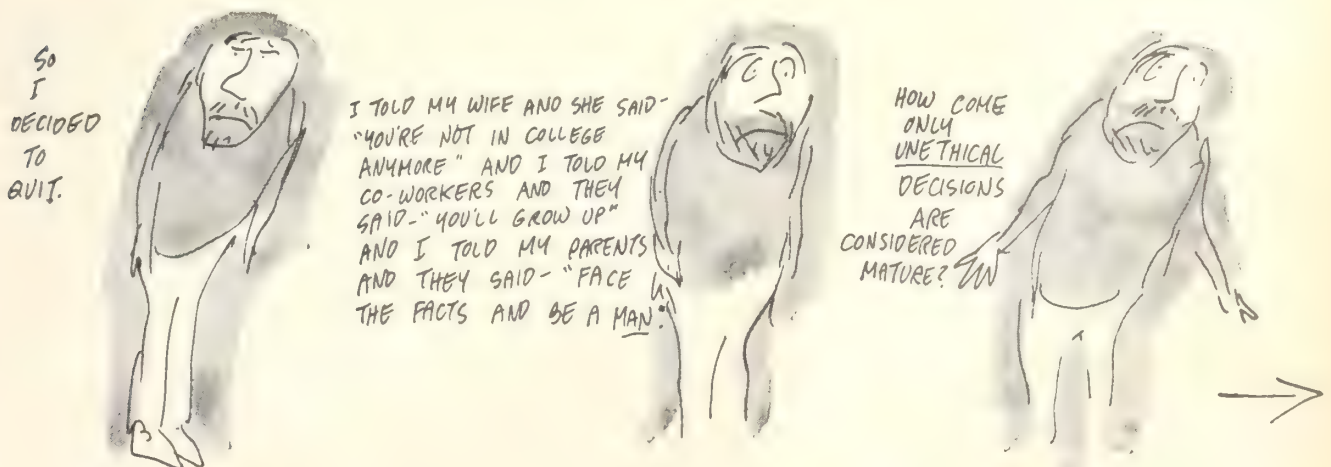 SO
I
DECIDED
TO
QUIT.
I TOLD MY WIFE AND SHE SAID-
"YOU'RE NOT IN COLLEGE
ANYMORE" AND I TOLD MY
CO-WORKERS AND THEY
SAID-"YOU'LL GROW UP"
AND I TOLD MY PARENTS
AND THEY SAID-"FACE
THE FACTS AND BE A MAN."
HOW COME
ONLY
UNETHICAL
DECISIONS
ARE
CONSIDERED
MATURE?